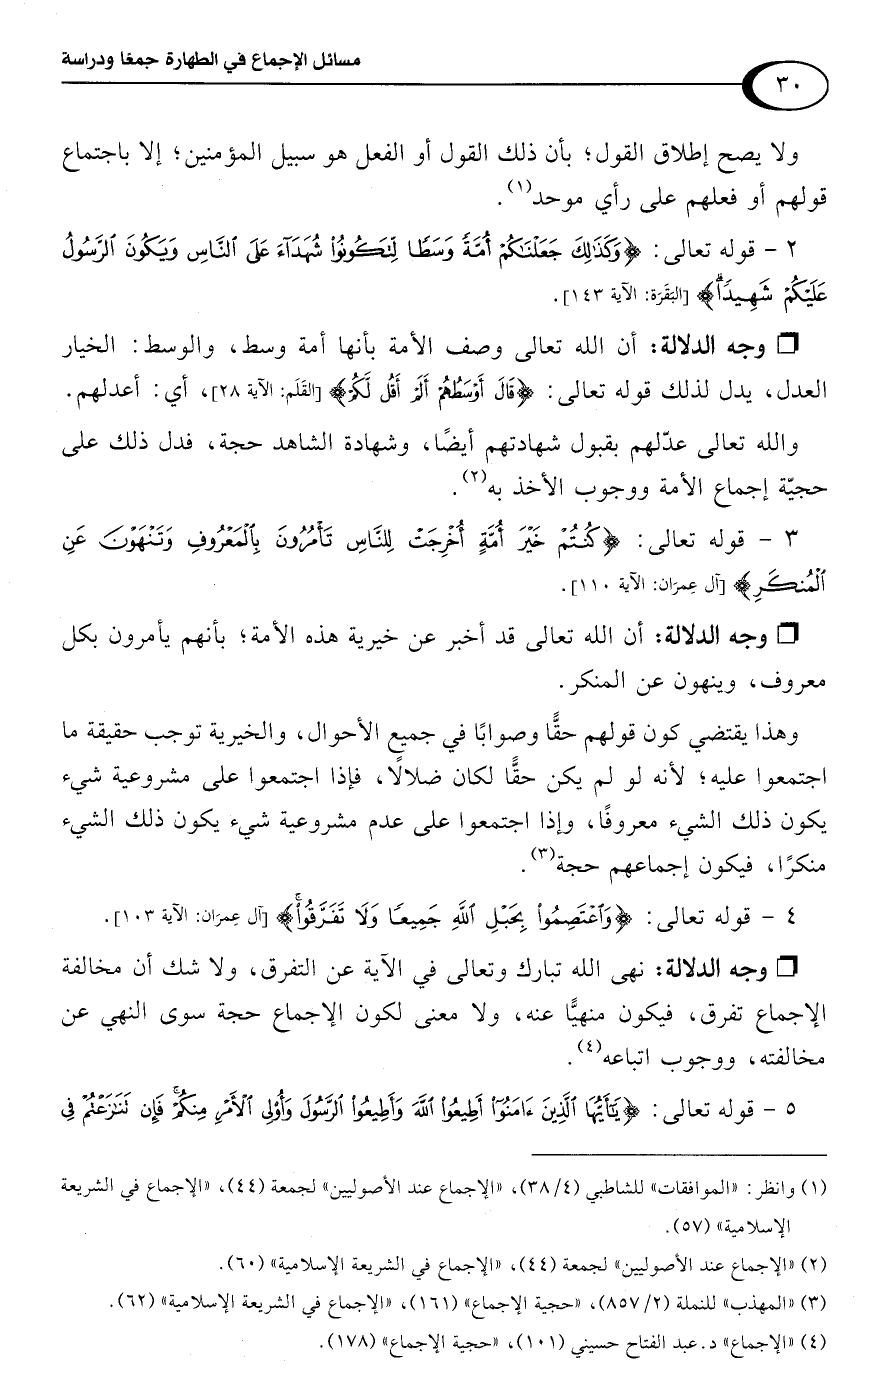 مسائل الإجماع في الطهارة جمعًا ودراسة
٣٠
ولا يصح إطلاق القول؛ بأن ذلك القول أو الفعل هو سبيل المؤمنين؛ إلا باجتماع
قولهم أو فعلهم على رأي موحد(١).
٢ - قوله تعالى: ﴿وَكَذَٰلِكَ جَعَلْنَٰكُمْ أُمَّةً وَسَطًا لِّتَكُونُوا۟ شُهَدَآءَ عَلَى ٱلنَّاسِ وَيَكُونَ ٱلرَّسُولُ
عَلَيْكُمْ شَهِيدًاۗ﴾ [البَقَرَة: الآية ١٤٣].
❒ وجه الدلالة: أن الله تعالى وصف الأمة بأنها أمة وسط، والوسط: الخيار
العدل، يدل لذلك قوله تعالى: ﴿قَالَ أَوْسَطُهُمْ أَلَمْ أَقُل لَّكُمْ﴾ [القَلَم: الآية ٢٨]، أي: أعدلهم.
والله تعالى عدّلهم بقبول شهادتهم أيضًا، وشهادة الشاهد حجة، فدل ذلك على
حجيّة إجماع الأمة ووجوب الأخذ به(٢).
٣ - قوله تعالى: ﴿كُنتُمْ خَيْرَ أُمَّةٍ أُخْرِجَتْ لِلنَّاسِ تَأْمُرُونَ بِٱلْمَعْرُوفِ وَتَنْهَوْنَ عَنِ
ٱلْمُنكَرِ﴾ [آل عِمرَان: الآية ١١٠].
❒ وجه الدلالة: أن الله تعالى قد أخبر عن خيرية هذه الأمة؛ بأنهم يأمرون بكل
معروف، وينهون عن المنكر.
وهذا يقتضي كون قولهم حقًّا وصوابًا في جميع الأحوال، والخيرية توجب حقيقة ما
اجتمعوا عليه؛ لأنه لو لم يكن حقًّا لكان ضلالًا، فإذا اجتمعوا على مشروعية شيء
يكون ذلك الشيء معروفًا، وإذا اجتمعوا على عدم مشروعية شيء يكون ذلك الشيء
منكرًا، فيكون إجماعهم حجة(٣).
٤ - قوله تعالى: ﴿وَٱعْتَصِمُوا۟ بِحَبْلِ ٱللَّهِ جَمِيعًا وَلَا تَفَرَّقُوا۟ۚ﴾ [آل عِمرَان: الآية ١٠٣].
❒ وجه الدلالة: نهى الله تبارك وتعالى في الآية عن التفرق، ولا شك أن مخالفة
الإجماع تفرق، فيكون منهيًّا عنه، ولا معنى لكون الإجماع حجة سوى النهي عن
مخالفته، ووجوب اتباعه(٤).
٥ - قوله تعالى: ﴿يَٰٓأَيُّهَا ٱلَّذِينَ ءَامَنُوٓا۟ أَطِيعُوا۟ ٱللَّهَ وَأَطِيعُوا۟ ٱلرَّسُولَ وَأُو۟لِى ٱلْأَمْرِ مِنكُمْۖ فَإِن تَنَٰزَعْتُمْ فِى
(١) وانظر: «الموافقات» للشاطبي (٣٨/٤)، «الإجماع عند الأصوليين» لجمعة (٤٤)، «الإجماع في الشريعة
الإسلامية» (٥٧).
(٢) «الإجماع عند الأصوليين» لجمعة (٤٤)، «الإجماع في الشريعة الإسلامية» (٦٠).
(٣) «المهذب» للنملة (٨٥٧/٢)، «حجية الإجماع» (١٦١)، «الإجماع في الشريعة الإسلامية» (٦٢).
(٤) «الإجماع» د. عبد الفتاح حسيني (١٠١)، «حجية الإجماع» (١٧٨).